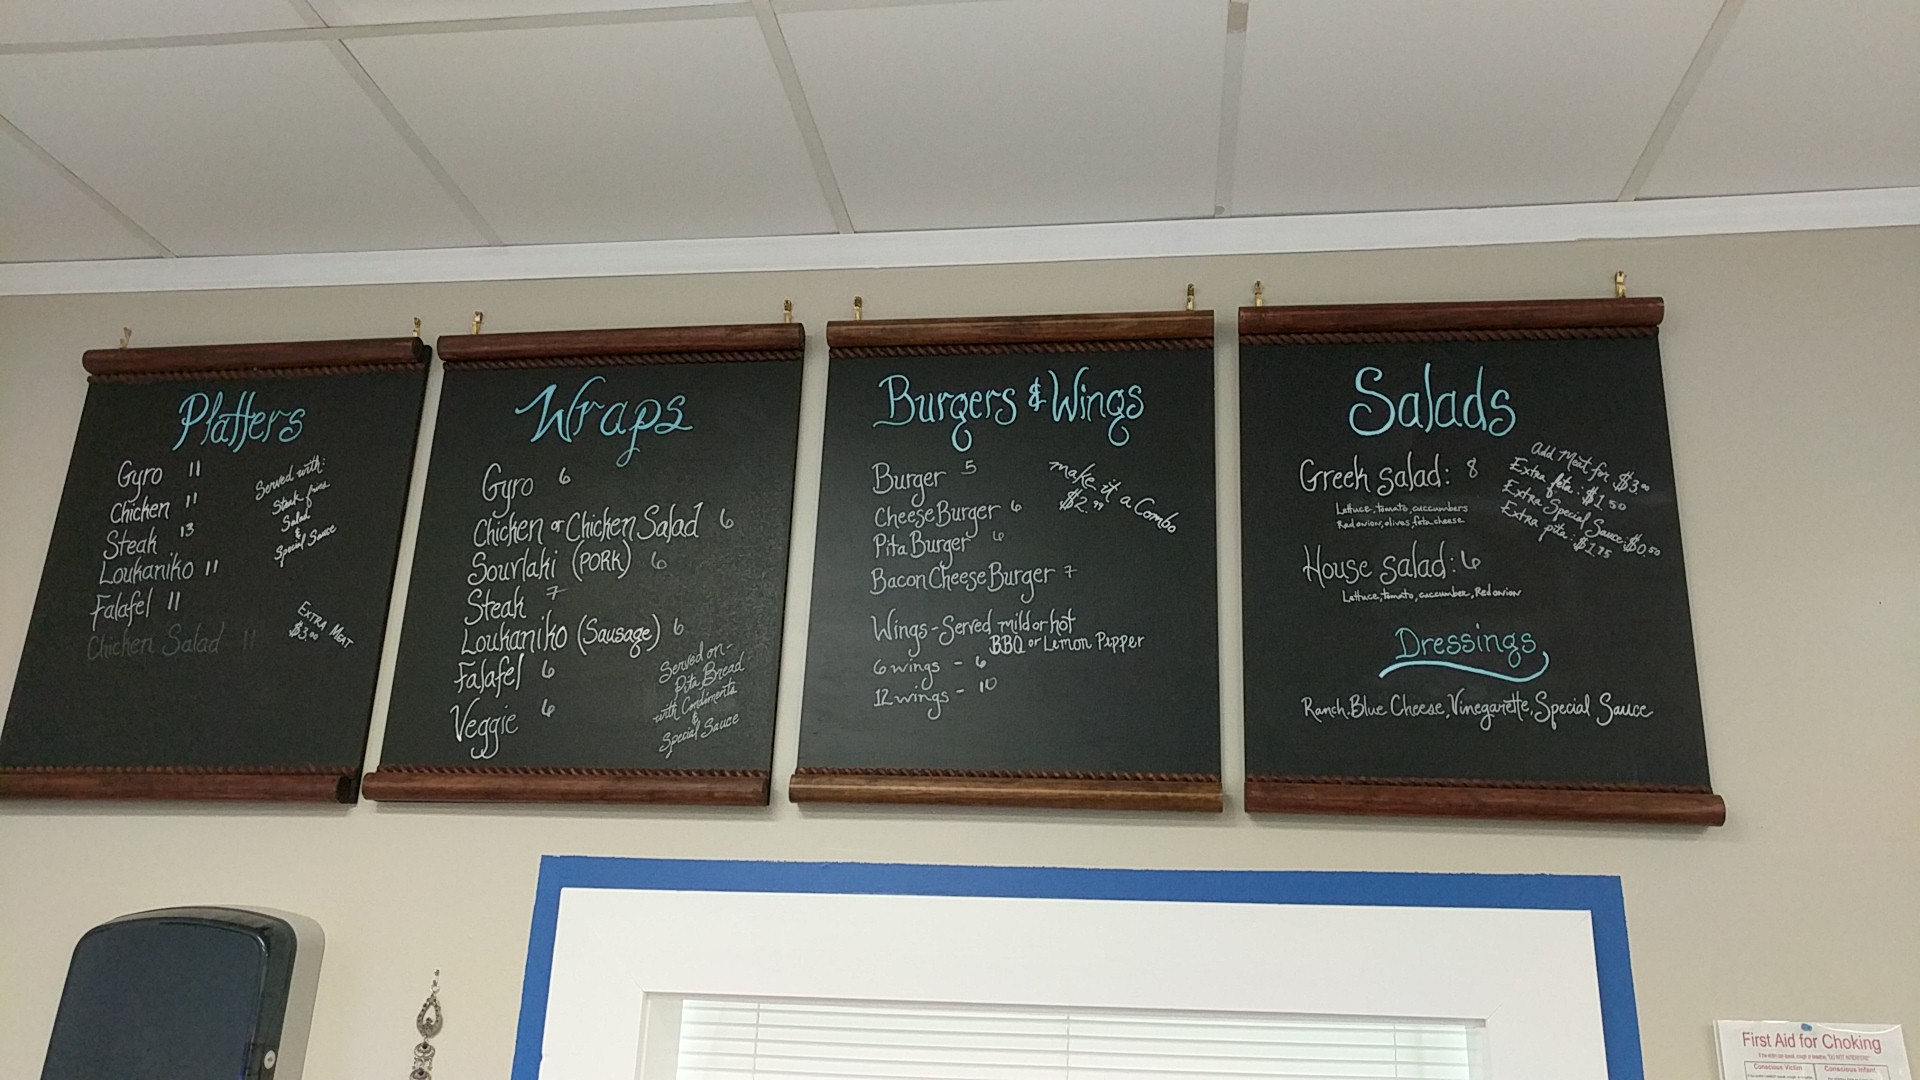 Platters
Gyro 11
Chicken 11
Steak 13
Loukaniko 11
Falafel 11
Chicken Salad 11
Served with:
Steak fries
Salad
&
Special Sauce
EXTRA MEAT
$3.00
Wraps
Gyro 6
Chicken or Chicken Salad 6
Souvlaki (PORK) 6
Steak 7
Loukaniko (Sausage) 6
Falafel 6
Veggie 6
Served on-
Pita Bread
with Condiments
&
Special Sauce
Burgers & Wings
Burger 5
CheeseBurger 6
Pita Burger 6
Bacon Cheese Burger 7
make it a Combo
$2.99
Wings - Served mild or hot
BBQ or Lemon Pepper
6 wings - 6
12 wings - 10
Salads
Greek salad: 8
Lettuce, tomato, cuccumbers
Red onion, olives, feta cheese
Add Meat for $3.00
Extra feta: $1.50
Extra Special Sauce: $0.50
Extra pita: $1.75
House salad: 6
Lettuce, tomato, cuccumber, Red onion
Dressings
Ranch, Blue Cheese, Vinegarette, Special Sauce
First Aid for Choking
Conscious Victim Conscious Infant